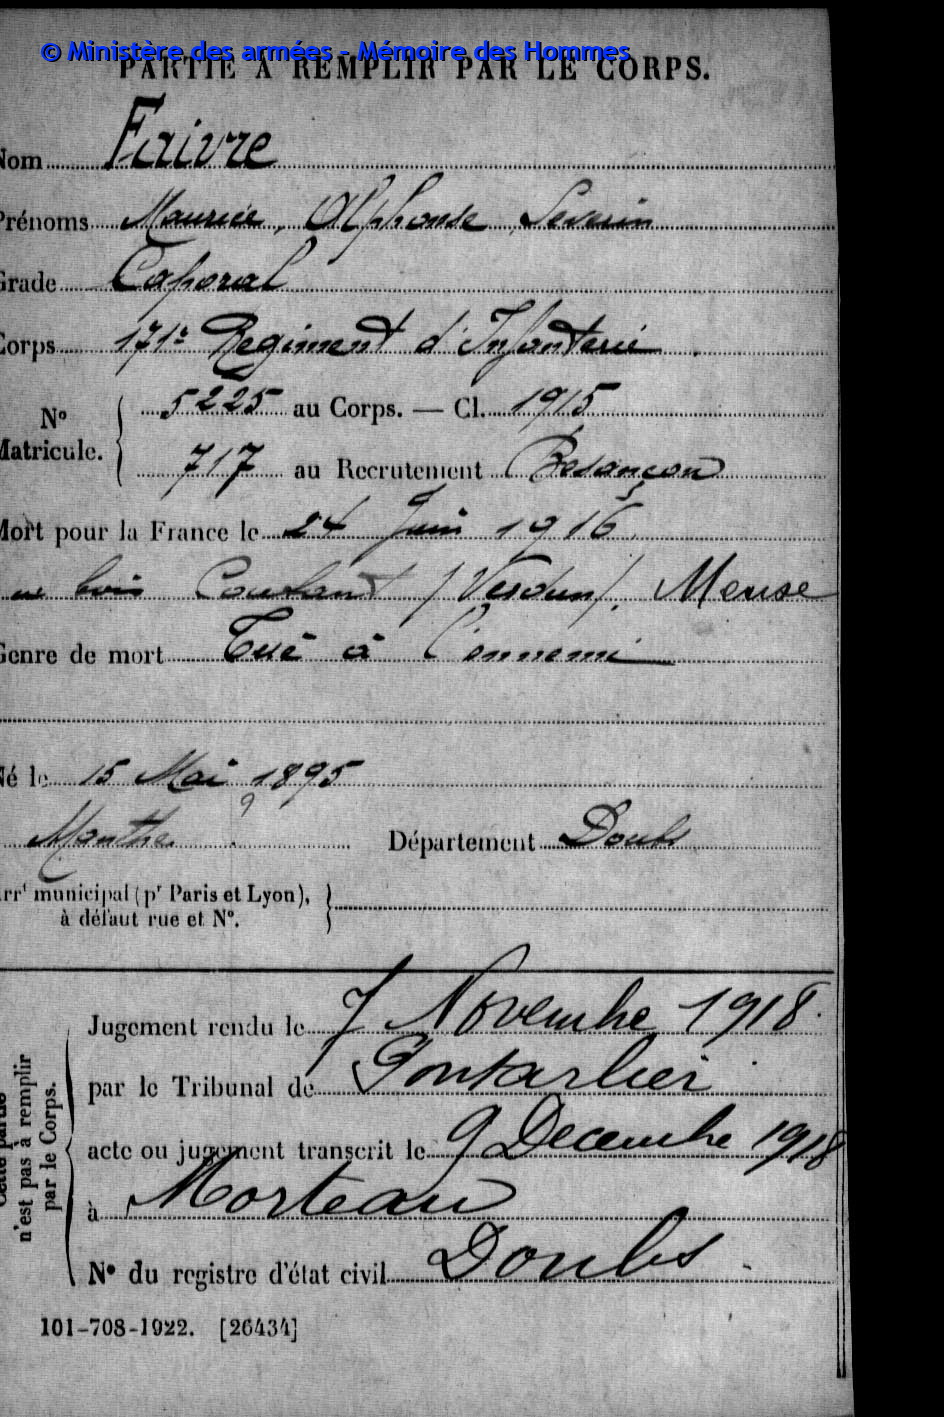 © Ministère des armées - Mémoire des Hommes
PARTIE A REMPLIR PAR LE CORPS.
Nom Faivre
Prénoms Maurice, Alphonse Severin
Grade Caporal
Corps 171e Regiment d'Infanterie
No Matricule. { 5225 au Corps. — Cl. 1915
717 au Recrutement Besançon
Mort pour la France le 24 Juin 1916
au bois Contant (Verdun) Meuse
Genre de mort Tué à l'ennemi
Né le 15 Mai 1895
Manthe Département Doubs
Arrt municipal (pr Paris et Lyon), }
à défaut rue et No.
Cette partie n'est pas à remplir par le Corps.
Jugement rendu le 7 Novembre 1918.
par le Tribunal de Pontarlier
acte ou jugement transcrit le 9 Decembre 1918
à Morteau
No du registre d'état civil Doubs
101-708-1922. [26434]